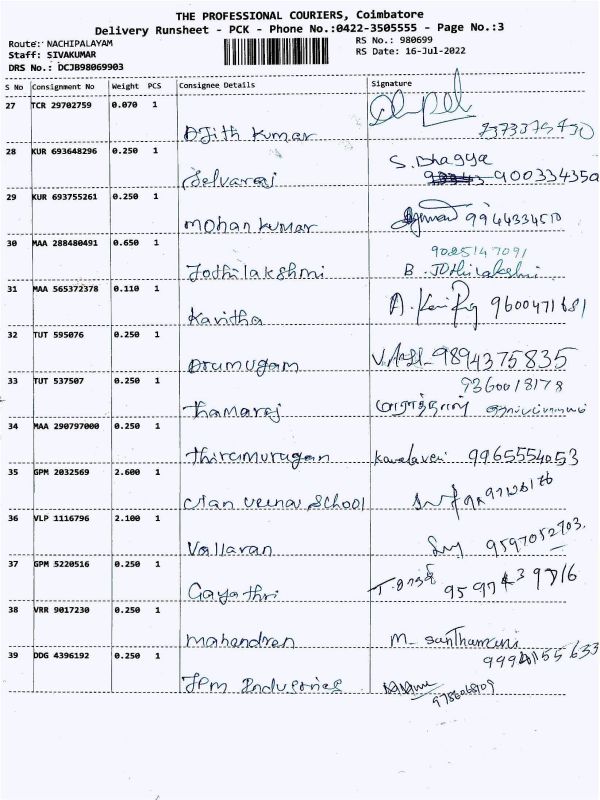 THE PROFESSIONAL COURIERS, Coimbatore
Delivery Runsheet - PCK - Phone No.:0422-3505555 - Page No.:3
Route: NACHIPALAYAM
RS No.: 980699
Staff: SIVAKUMAR
RS Date: 16-Jul-2022
DRS No.: DCJB98069903
S No Consignment No Weight PCS Consignee Details Signature
27 TCR 29702759 0.070 1
Ajith kumar
28 KUR 693648296 0.250 1 S. Bhagya
Selvaraj 900334350
29 KUR 693755261 0.250 1
mohan kumar 9944334510
30 MAA 288480491 0.650 1 9025147091
Jothilakshmi B. Jothilakshmi
31 MAA 565372378 0.110 1
Kavitha 9600471681
32 TUT 595076 0.250 1
Arumugam 9894375835
33 TUT 537507 0.250 1 9360018178
Thamaraj
34 MAA 290797000 0.250 1
thirumurugan 9965554053
35 GPM 2032569 2.600 1
School
36 VLP 1116796 2.100 1
Vallavan 9597052703.
37 GPM 5220516 0.250 1
Gayathri
38 VRR 9017230 0.250 1
mahendran M. Santhamani
39 DDG 4396192 0.250 1
JPM Industries